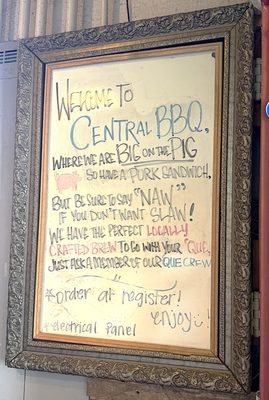 WELCOME TO
CENTRAL BBQ,
WHERE WE ARE BIG ON THE PIG
SO HAVE A PORK SANDWICH,
BUT BE SURE TO SAY "NAW"
IF YOU DON'T WANT SLAW!
WE HAVE THE PERFECT LOCALLY
CRAFTED BREW TO GO WITH YOUR 'QUE,
JUST ASK A MEMBER OF OUR QUE CREW
*order at register!
enjoy!
electrical Panel